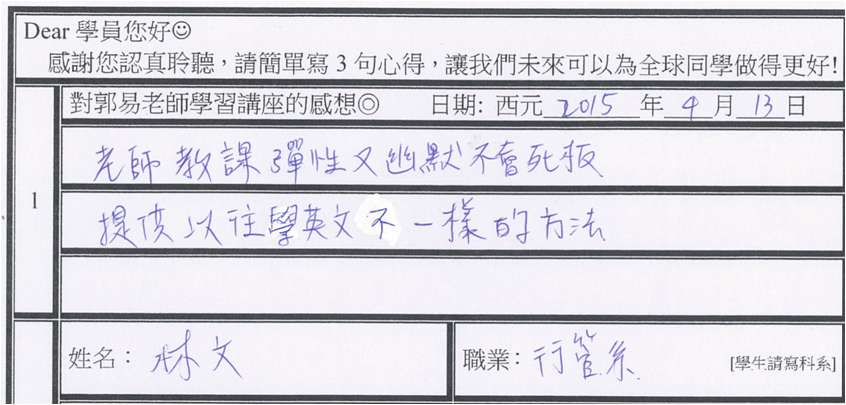 Dear 學員您好☺
感謝您認真聆聽，請簡單寫 3 句心得，讓我們未來可以為全球同學做得更好!
1
對郭易老師學習講座的感想◎ 日期: 西元 2015 年 4 月 13 日
老師教課彈性又幽默不會死板
提供以往學英文不一樣的方法
姓名： 林文 職業： 行管系 [學生請寫科系]